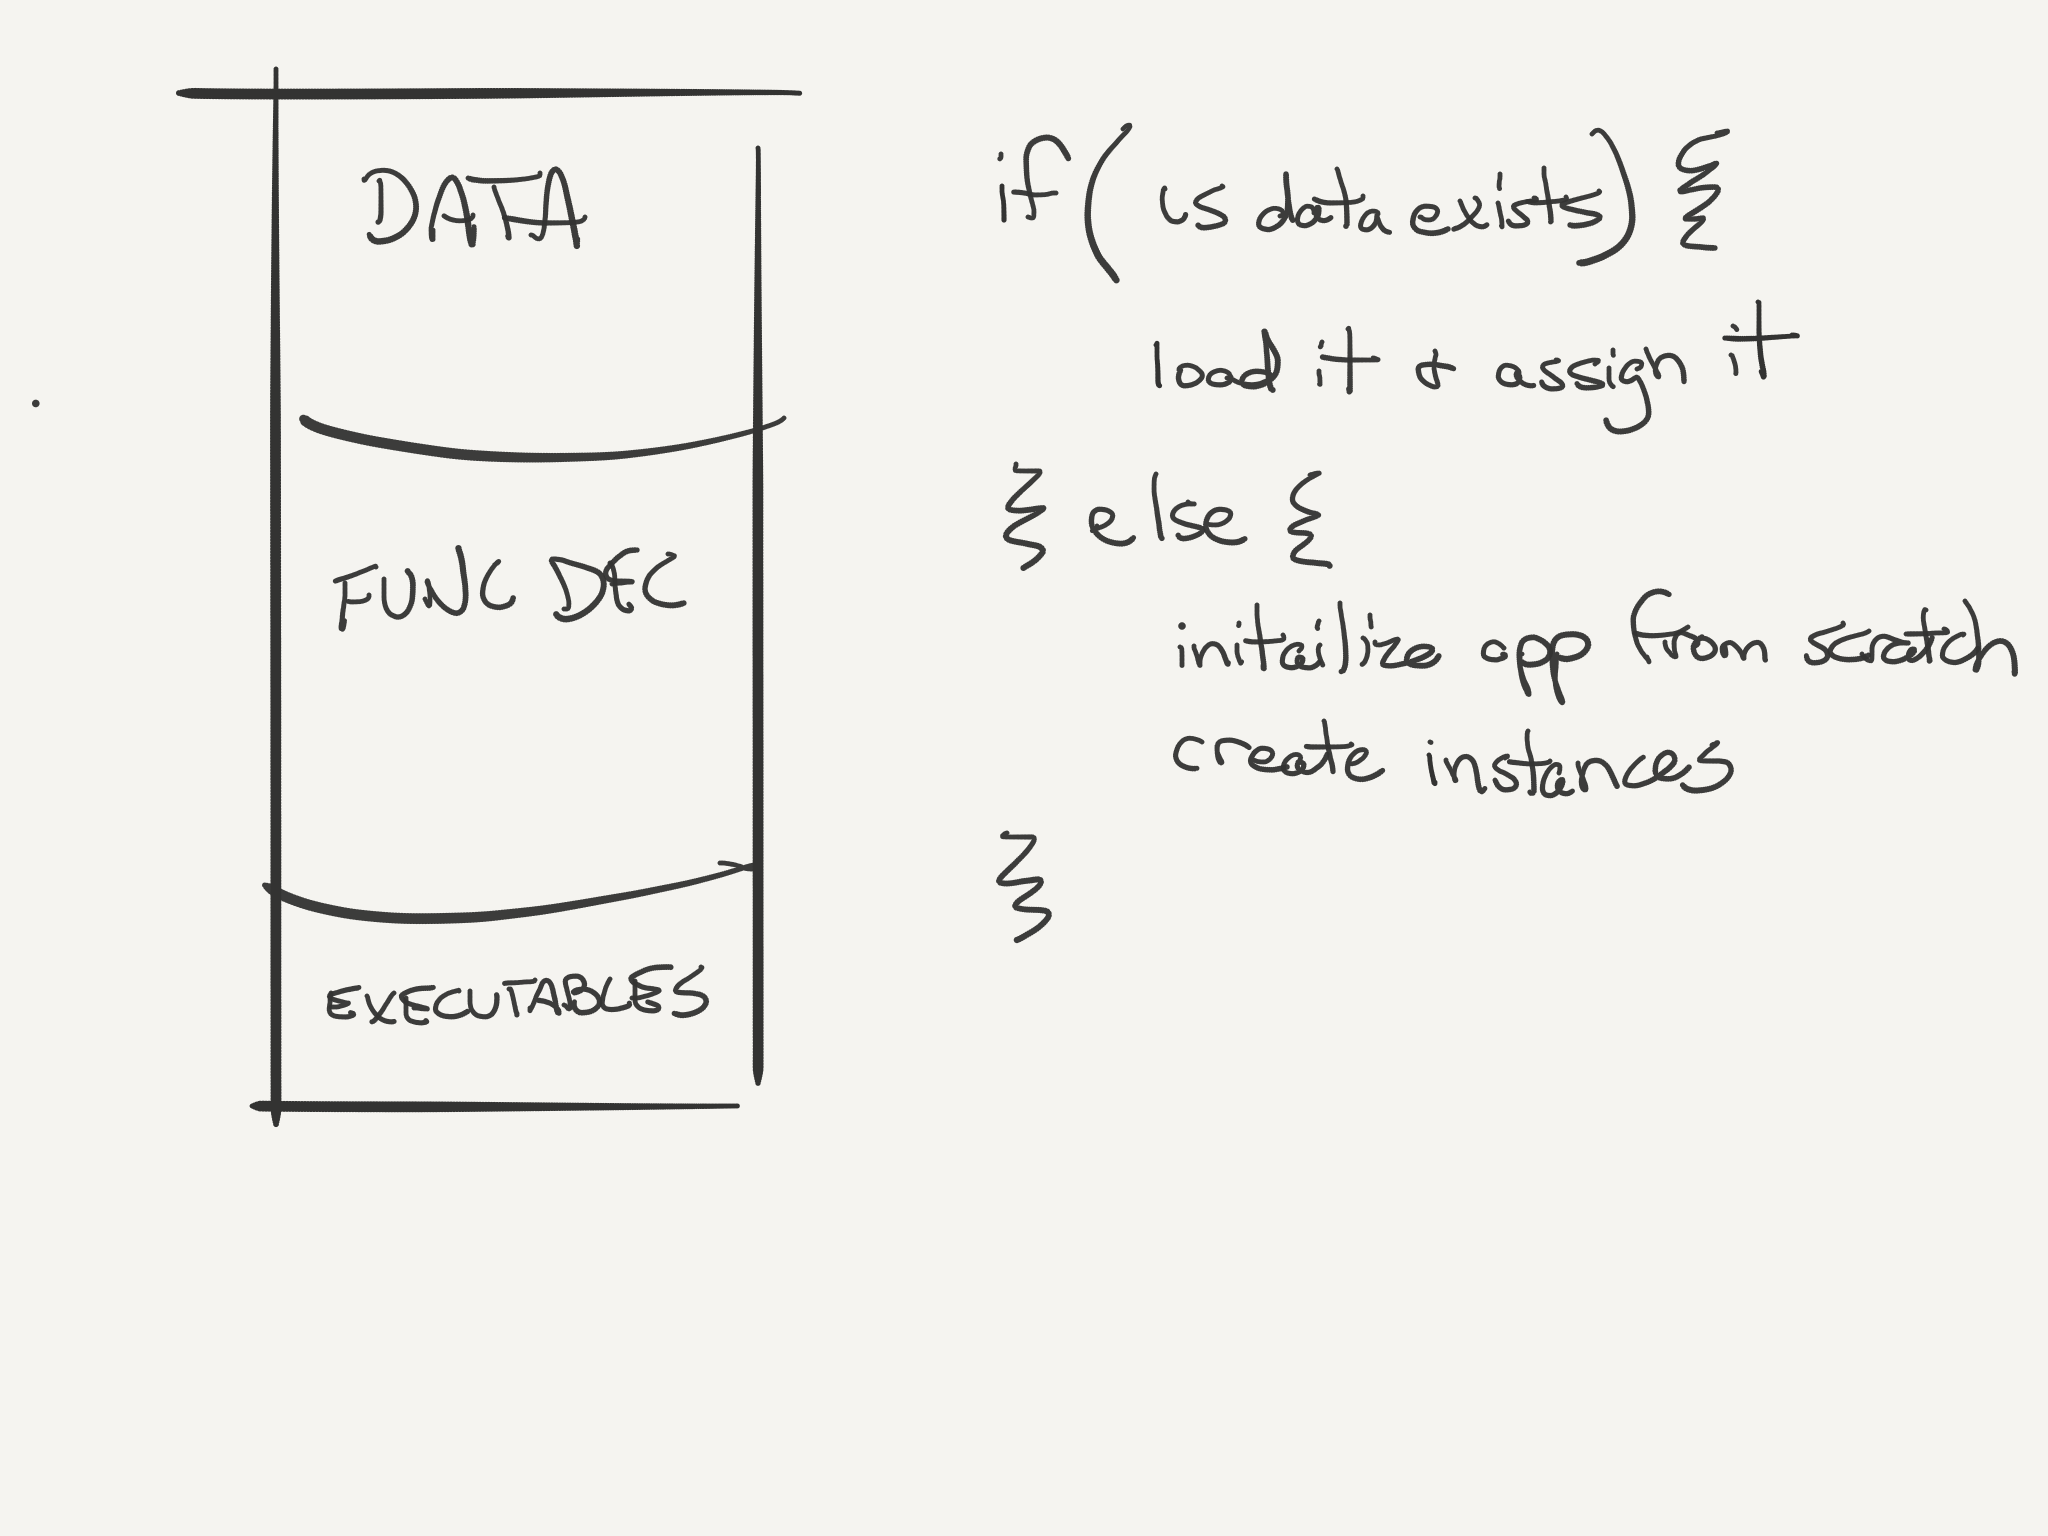 DATA
FUNC DEC
EXECUTABLES
if ( us data exists ) {
load it & assign it
} else {
initailize app from scratch
create instances
}